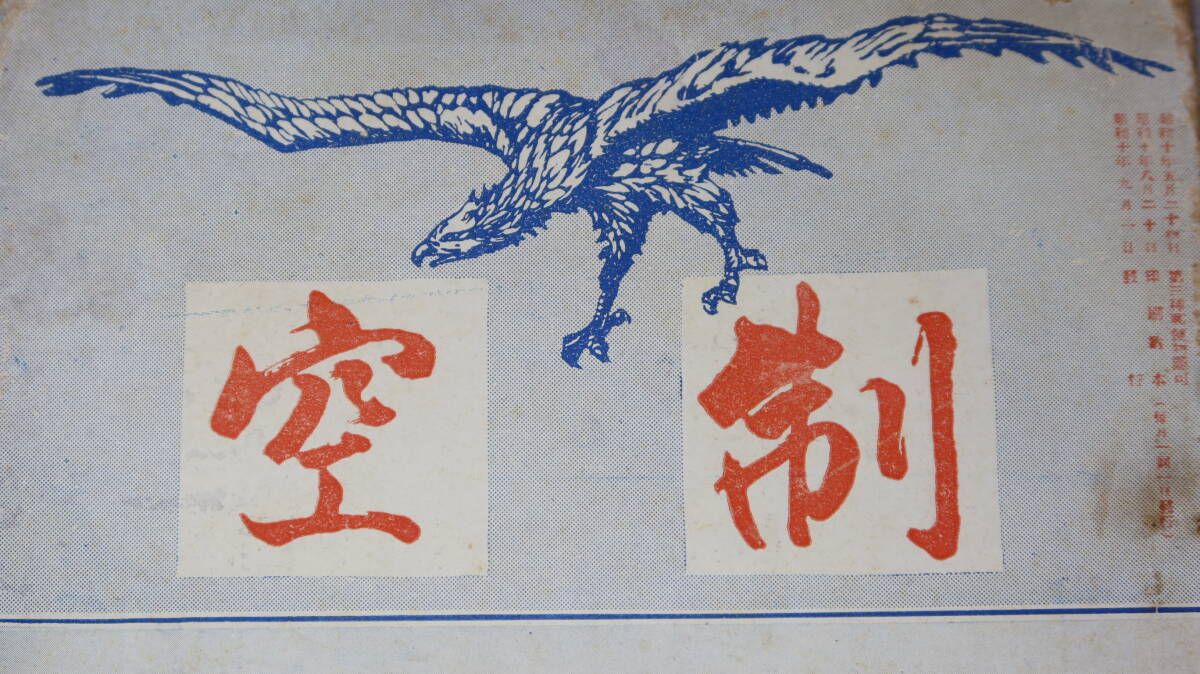 制空
昭和十年五月二十四日 第三種郵便物認可
昭和十年八月二十日 印刷納本(毎月一回一日発行)
昭和十年九月一日 發行